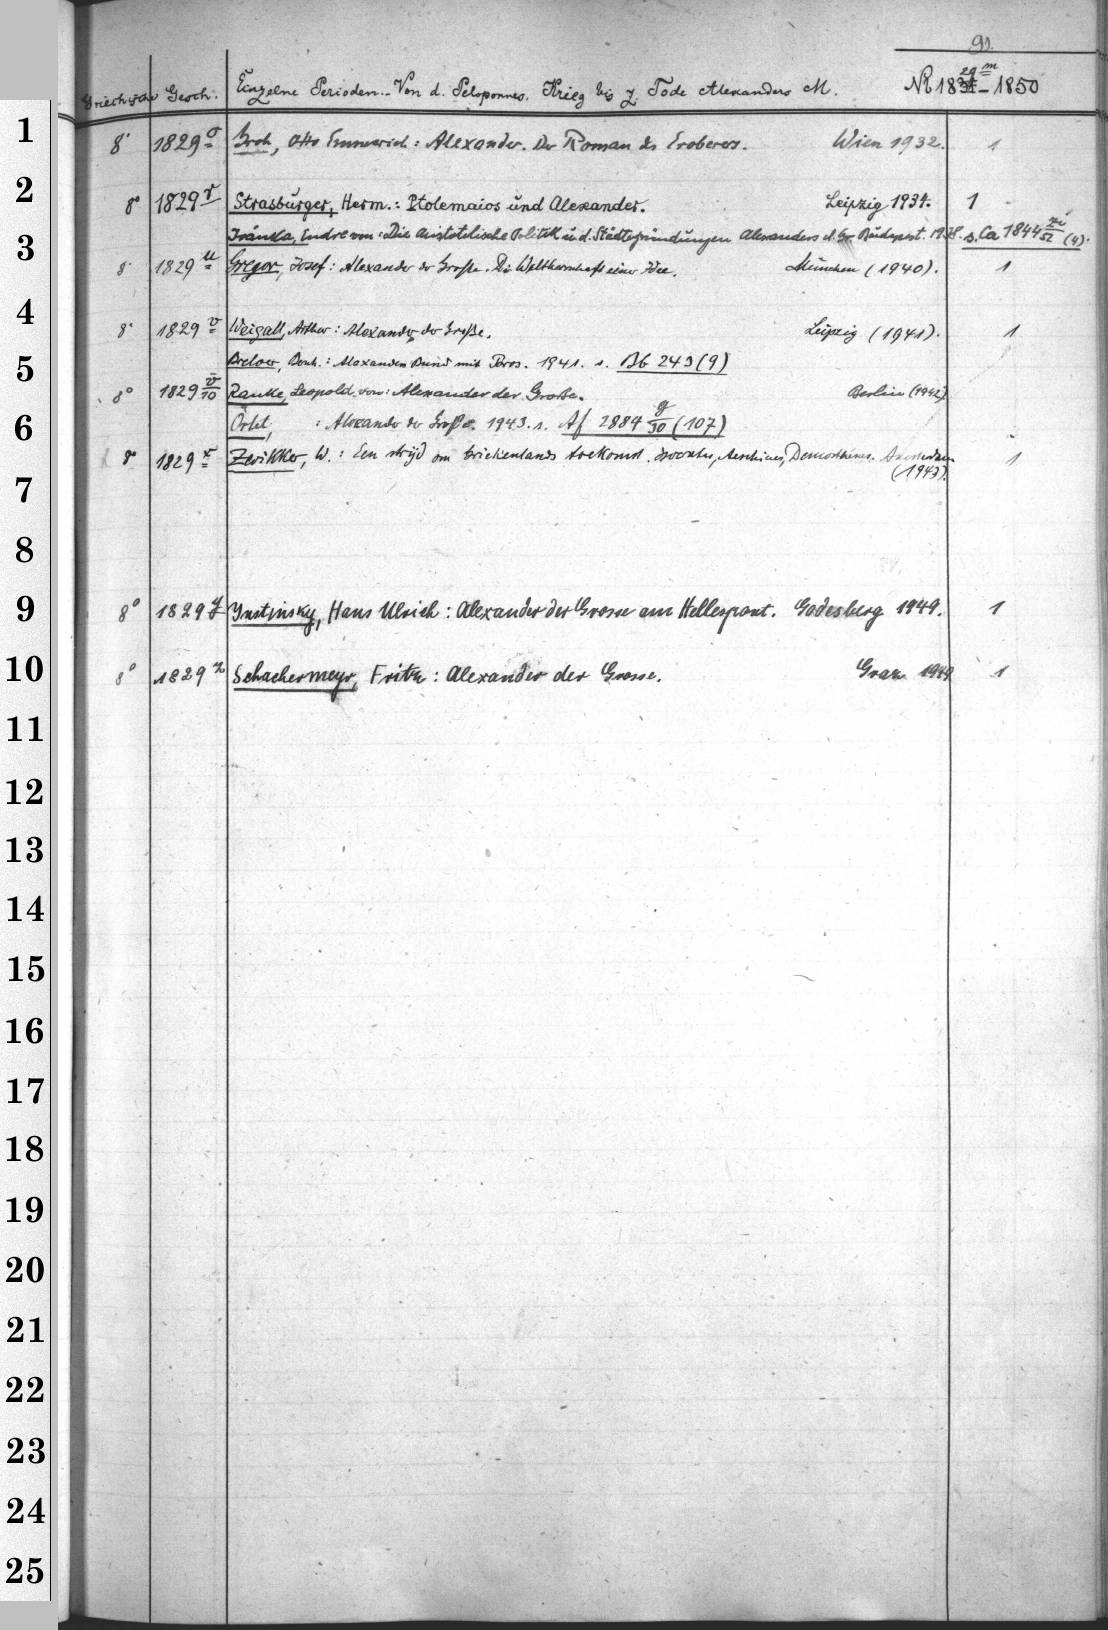 91
Griechische Gesch. Einzelne Perioden. Von d. Peloponnes. Krieg bis z. Tode Alexanders M. № 1829 m – 1850
1
8° 1829 o Groh, Otto Emmerich: Alexander. Der Roman des Eroberers. Wien 1932. 1
2
8° 1829 r Strasburger, Herm.: Ptolemaios und Alexander. Leipzig 1934. 1
Ivánka, Endre von: Die aristotelische Politik u. d. Städtegründungen Alexanders d. Gr. Budapest. 1938. s. Ca 1844 zi/52 (4).
3
8° 1829 u Gregor, Josef: Alexander der Große. Die Weltherrschaft einer Idee. München (1940). 1
4
8° 1829 v Weigall, Arthur: Alexander der Große. Leipzig (1941). 1
5
Breloer, Bernh.: Alexanders Bund mit Poros. 1941. s. Bb 243 (9)
8° 1829 v/10 Ranke, Leopold von: Alexander der Große. Berlin (1942).
6
Örtel, : Alexander der Große. 1943. s. Af 2884 g/30 (107)
8° 1829 x Zwikker, W.: Een strijd om Griekenlands toekomst. Isocrates, Aeschines, Demosthenes. Amsterdam 1
(1943).
7
8
9
8° 1829 y Instinsky, Hans Ulrich: Alexander der Grosse am Hellespont. Godesberg 1949. 1
10
8° 1829 z Schachermeyr, Fritz: Alexander der Grosse. Graz 1949 1
11
12
13
14
15
16
17
18
19
20
21
22
23
24
25